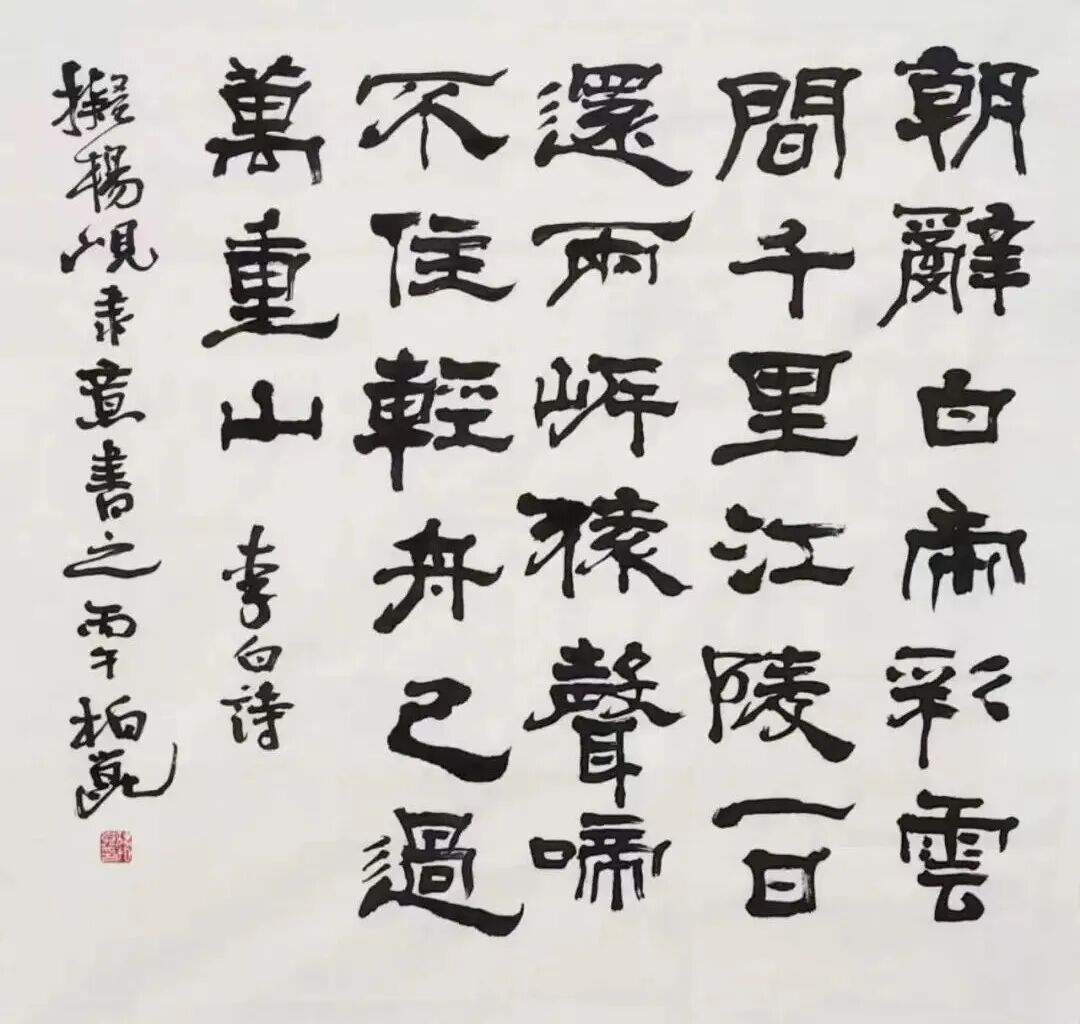 朝辭白帝彩雲
間千里江陵一日
還兩岸猿聲啼
不住輕舟已過
萬重山 李白詩
擬楊峴隶意書之丙午柏